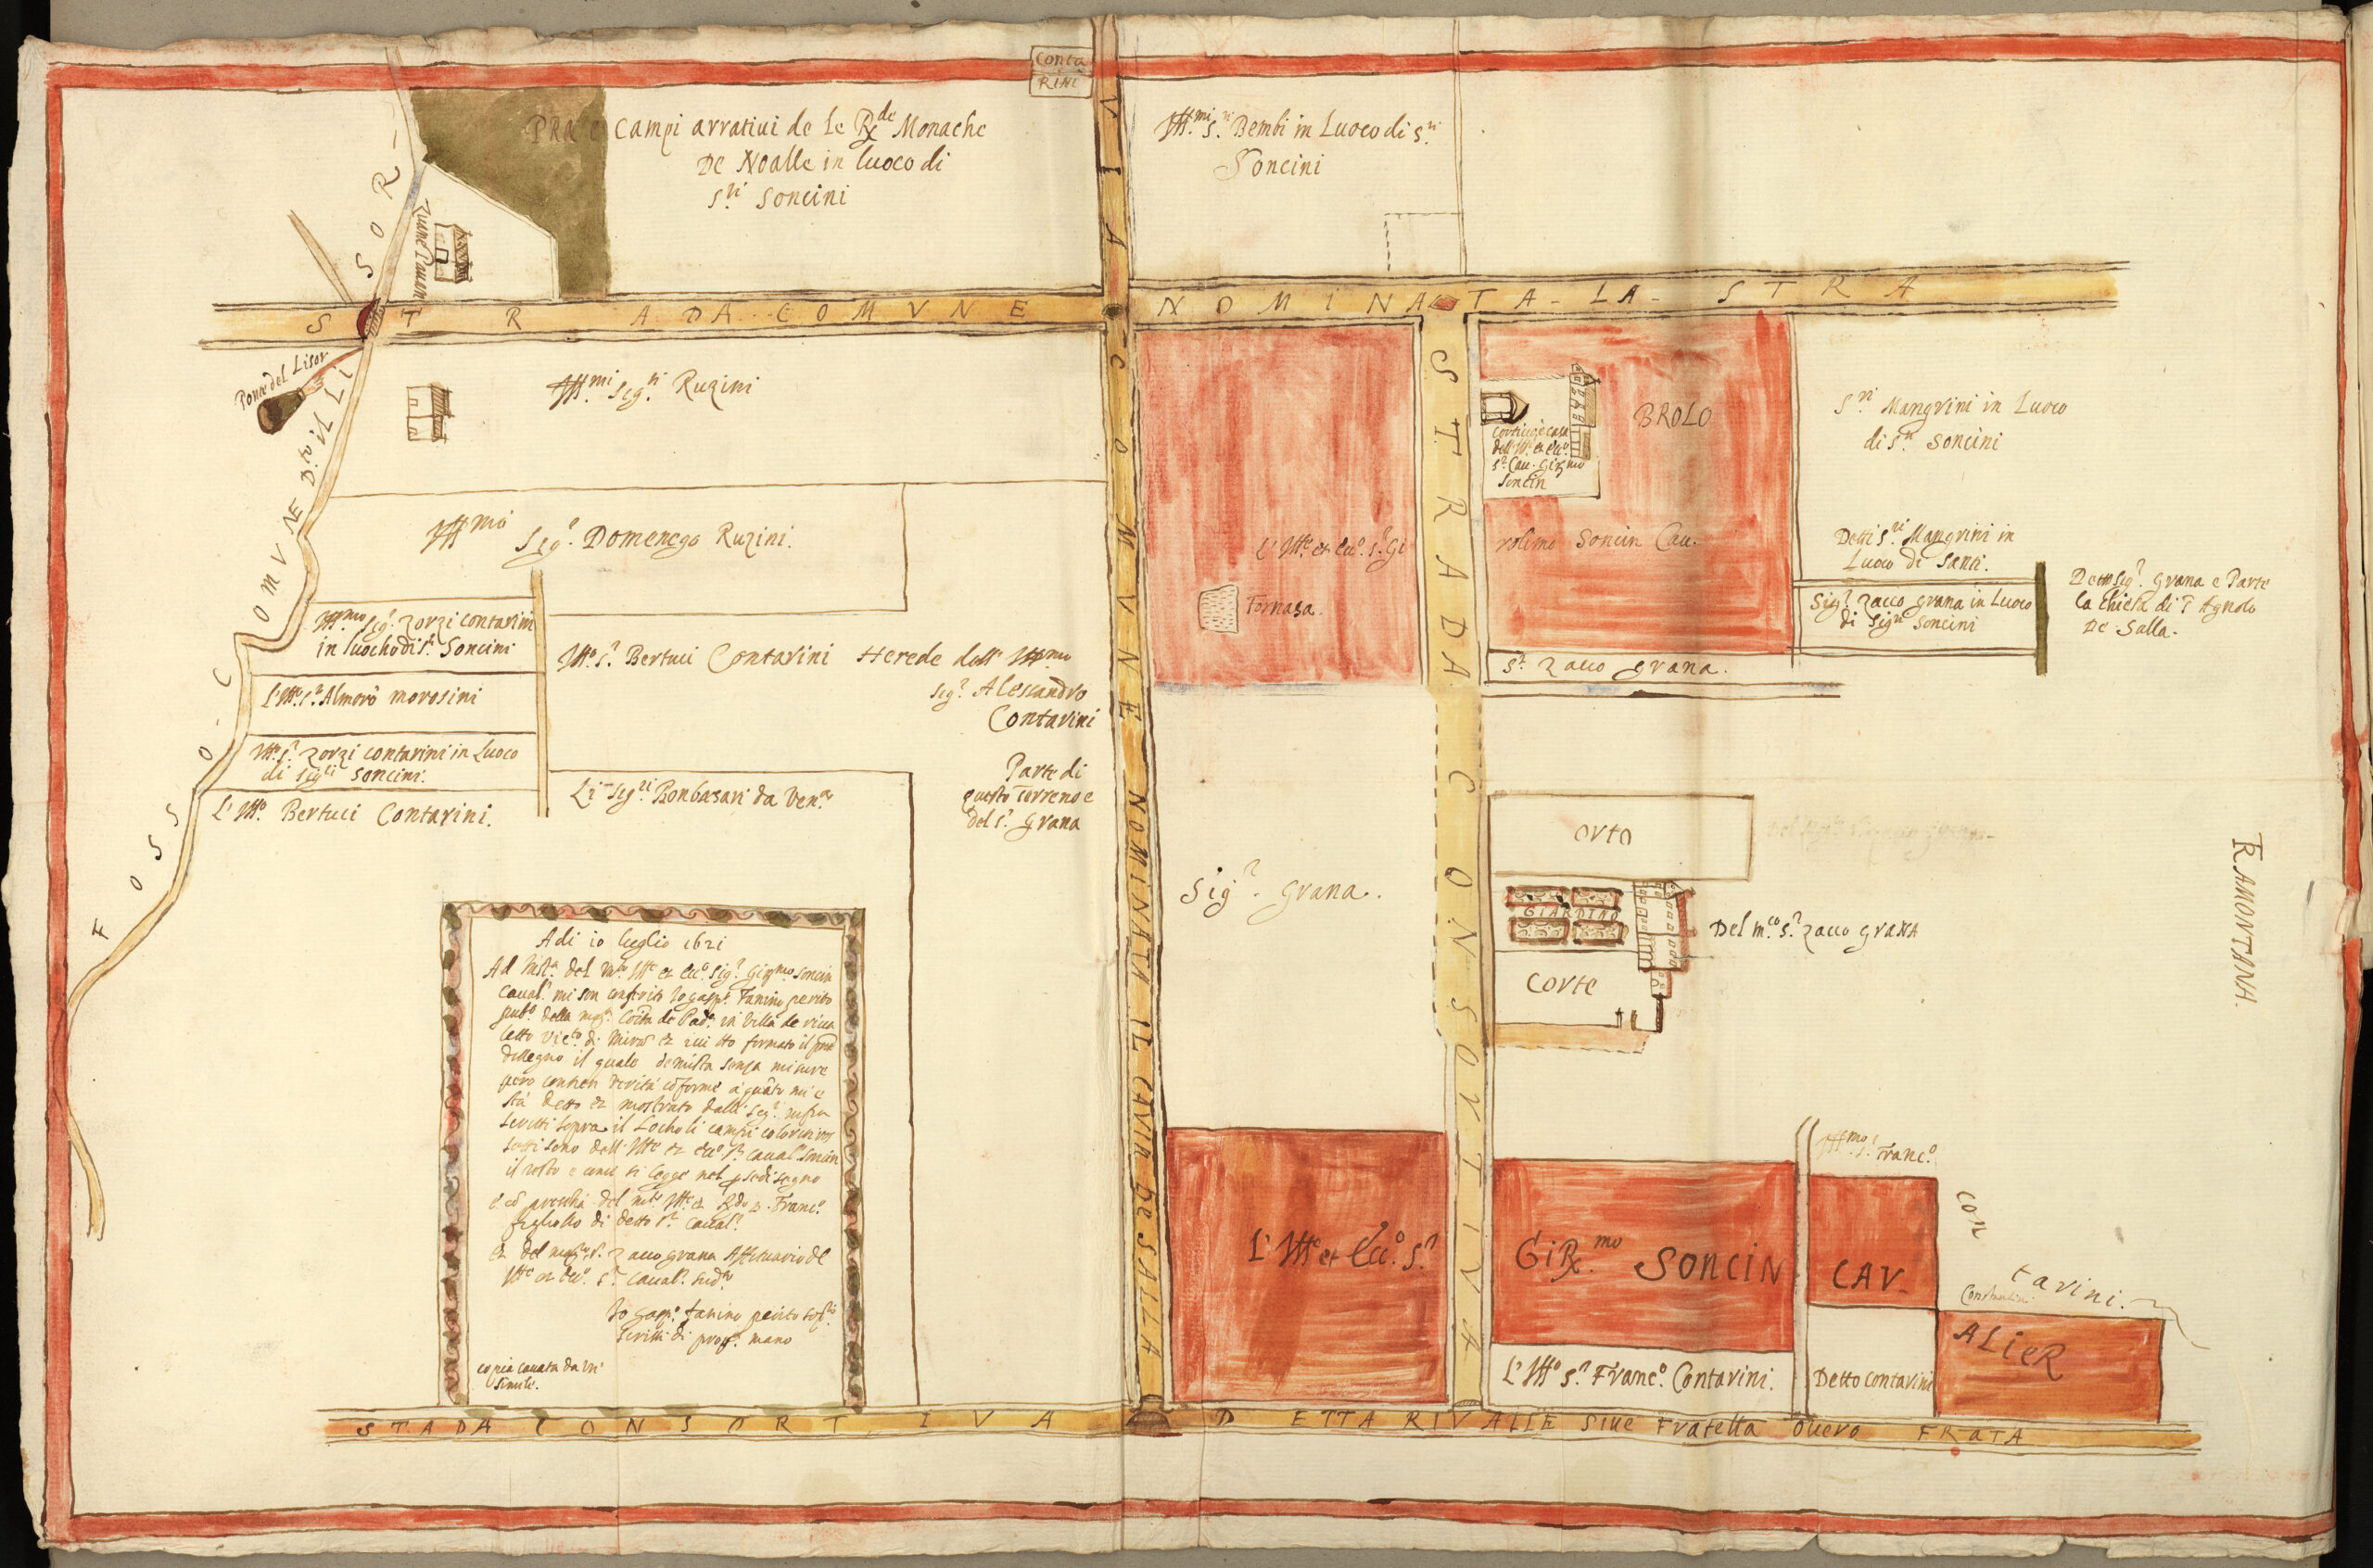 Conta
RiNi
PRA e Campi arratiui de le Rde Monache
De Noalle in luoco di
S.ri Soncini
Ill.mi S.ri Bembi in Luoco di S.ri
Soncini
Zuane Pauan
STRADA COMVNE NOMINATA LA STRA
Ponte del Lisor
FOSSO COMVNE D.to IL LISSOR
Ill.mi Sig.ri Ruzini
Ill.mo Sig.r Domenego Ruzini.
Ill.mo Sig.r Zorzi Contarini
in luocho di S.ri Soncini
L'Ill.o S.r Almorò morosini
Ill.o S.r Zorzi Contarini in Luoco
di Sig.ri Soncini.
L'Ill.o Bertuci Contarini.
Ill.o S.r Bertuci Contarini Herede dell' Ill.mo
Sig.r Alessandro
Contarini
Parte di
questo Terreno e
Del S.r Grana
Li Sig.ri Bonbasari da Ven.a
VIA COMVNE NOMINATA IL CAVIN De SALLA
BROLO
Cortiuo e casa
dell' Ill. et Ecc.o
S.r Cau. Gir.mo
Soncin
L'Ill.e et Ecc.o S.r Gi
rolimo Soncin Cau.
Fornasa
S.r Zacco Grana.
S.ri Mangrini in Luoco
di S.ri Soncini
Detti S.ri Mangrini in
Luoco di Santi.
Sig.r Zacco Grana in Luoco
di Sig.ri Soncini
Detto Sig.r Grana e Parte
la Chiesa di S. Agnolo
De Salla.
STRADA CONSORTIVA
Sig.r Grana.
orto
GIARDINO
Corte
Del m.co S.r Zacco GRANA
TRAMONTANA.
Adi 10 luglio 1621
Ad Inst.a del m.to Ill.e et Ecc.o Sig.r Gir.mo Soncin
Caual.r mi son conferito Io Gasp.o Fanino perito
pub.o della mag.ca Città de Pad.a in Villa de riua
letto Vic.to di Miran et iui ho formato il pnte
dissegno il quale demostra senza misure
pero contien verità cōforme a quāto mi è
stà detto et mostrato dalli Seg.ti infra
scritti sopra il Locho li campi coloriti ros
setti sono dell' Ill.e et Ecc.o S.r Caual.r Soncin
il resto e come si legge nel pnte disegno
e cō presentia del m.to Ill.e et R.do D. Franc.o
figliolo di detto S.r Caual.r
et del mag.co S. Zacco Grana Affituario del
Ill.e et Ecc.o S.r Caual.r sud.o
Io Gasp.o Fanino perito sos.
scrissi di prop.a mano
copia cauata da vn'
simile.
L'Ill.e et Ecc.o S.r
GiR.mo SONCIN
CAV-
ALieR
Ill.mo S.r Franc.o
Con
tarini.
L'Ill.o S.r Franc.o Contarini.
Detto contarini
STADA CONSORTIVA DETTA RIVALLE Siue Fratella ouero FRATA